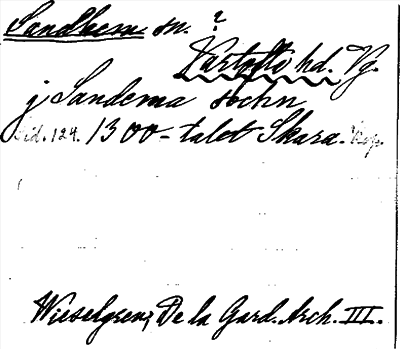 Sandhem sn. ?
Vartofta hd. Vg.
j Sandema sochn
Sid. 124. 1300-talet Skara. Kop.
Wieselgren, De la Gard. Arch. III.